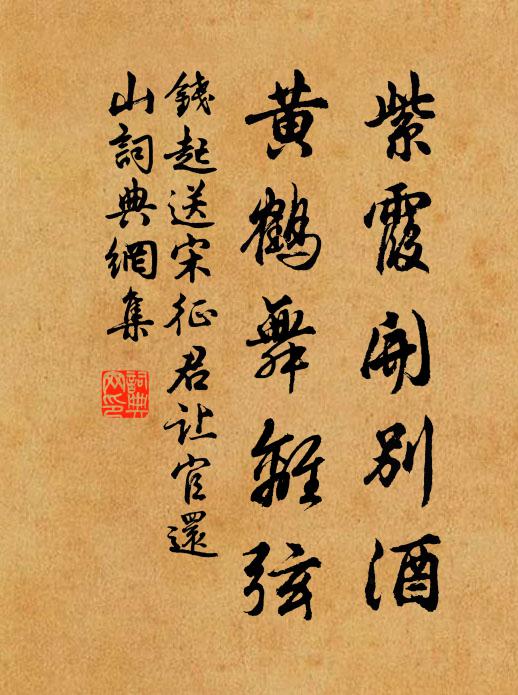 紫霞開別酒
黄鶴舞離弦
錢起送宋征君让官還
山詞典網集
詞典网印